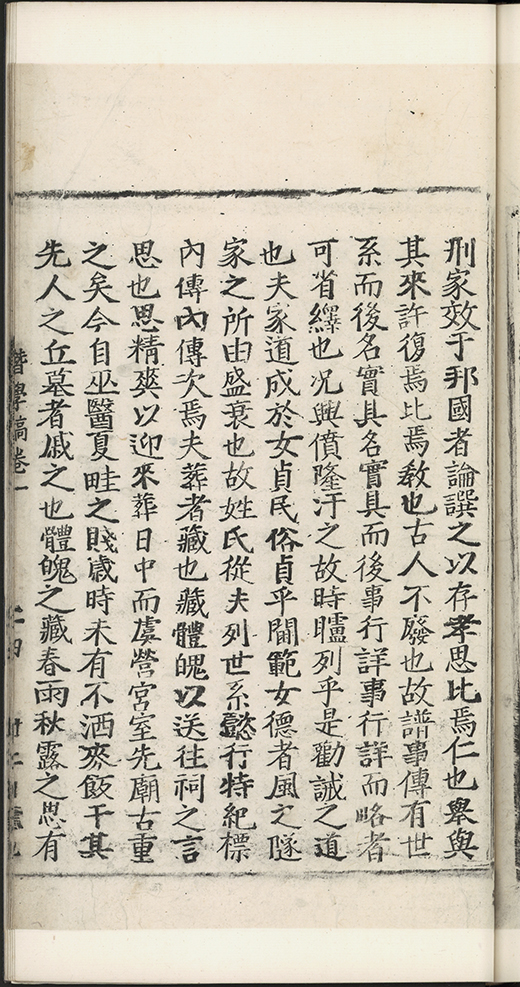 刑家效于邦國者論譔之以存孝思比焉仁也舉與
其來許復焉比焉敎也古人不廢也故譜事傳有世
系而後名實具名實具而後事行詳事行詳而略者
可省繹也况興僨隆汙之故時臚列乎是勸誡之道
也夫家道成於女貞民俗貞乎閫範女德者風之隧
家之所由盛衰也故姓氏從夫列世系懿行特紀標
內傳內傳次焉夫葬者藏也藏體魄以送往祠之言
思也思精爽以迎來葬日中而虞營宮室先廟古重
之矣今自巫醫夏畦之賤歲時未有不洒麥飯于其
先人之丘墓者戚之也體魄之藏春雨秋露之思有
學稿卷一